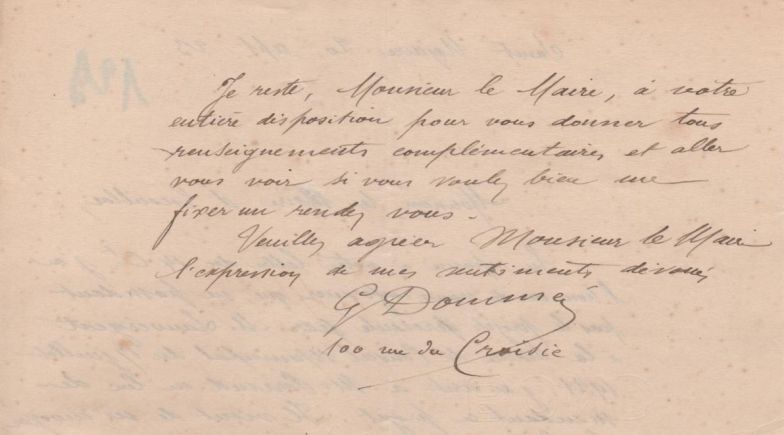 Je reste, Monsieur le Maire, à votre
entière disposition pour vous donner tous
renseignements complémentaires et aller
vous voir si vous voulez bien me
fixer un rendez vous.
Veuillez agréer Monsieur le Maire
l'expression de mes sentiments dévoués
G
100 rue du Croisic